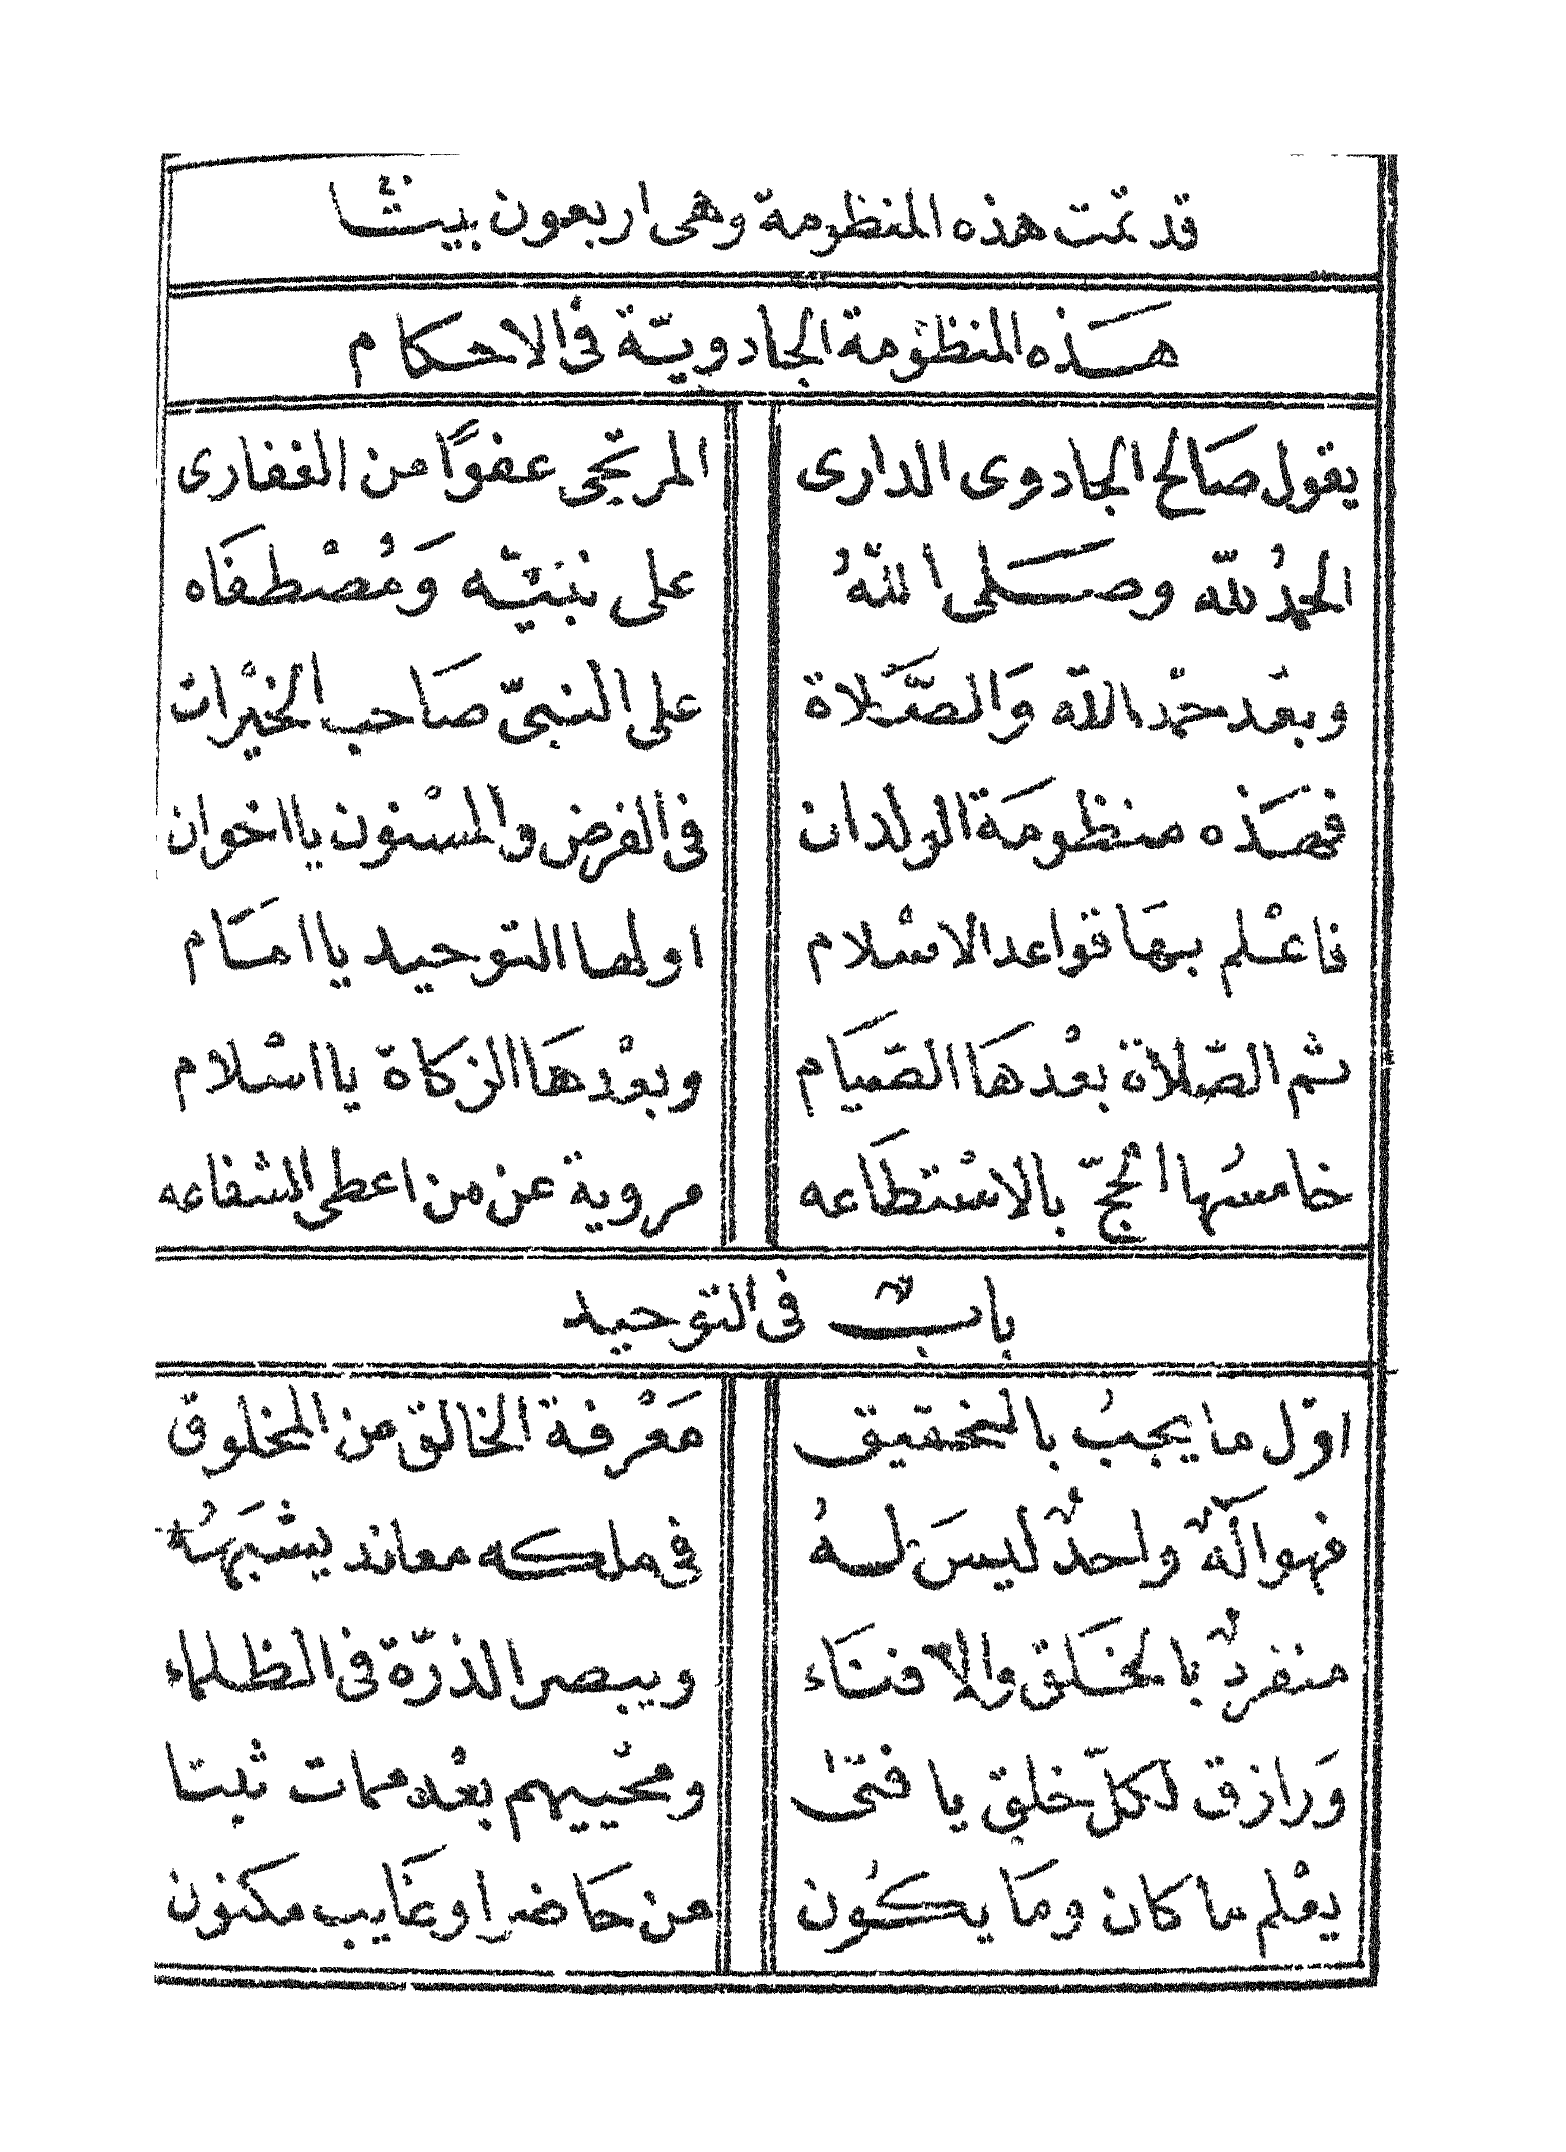 قد تمت هذه المنظومة وهى اربعون بيتا
هذه المنظومة الجادوية فى الاحكام
يقول صالح الجادوى الدارى المرتجى عفوًا من الغفارى
الحمدُ لله وصلى اللهُ على نبيّه وَمُصْطفَاه
وبعَد حمْد الله وَالصّلاة على النبىّ صَاحب الخيْرات
فهَذه منظومَة الولدان فى الفرض والمسْنون يا اخوان
فاعْلم بهَا قواعد الاسْلام اولها التوحيد يا امَام
ثم الصّلاة بعْدهَا الصّيَام وبعْدهَا الزكاة يا اسْلام
خامسُها الحجّ بالاسْتطَاعه مروية عن من اعطى الشفاعه
بابٌ فى التوحيد
اوّل ما يجبُ بالتحقيق مَعْرفة الخالق من المخلوق
فهو الَهٌ واحدٌ ليسَ لهُ فى ملكه معاند يشْبَههُ
منفردٌ بالخَلق والافنَاء ويبصر الذرّة فى الظلماء
وَرازق لكلّ خلق يا فتىٰ ومحْييهم بعْد ممات ثبتا
يعْلم ما كان ومَا يكُون من حَاضر او غَايب مكنون